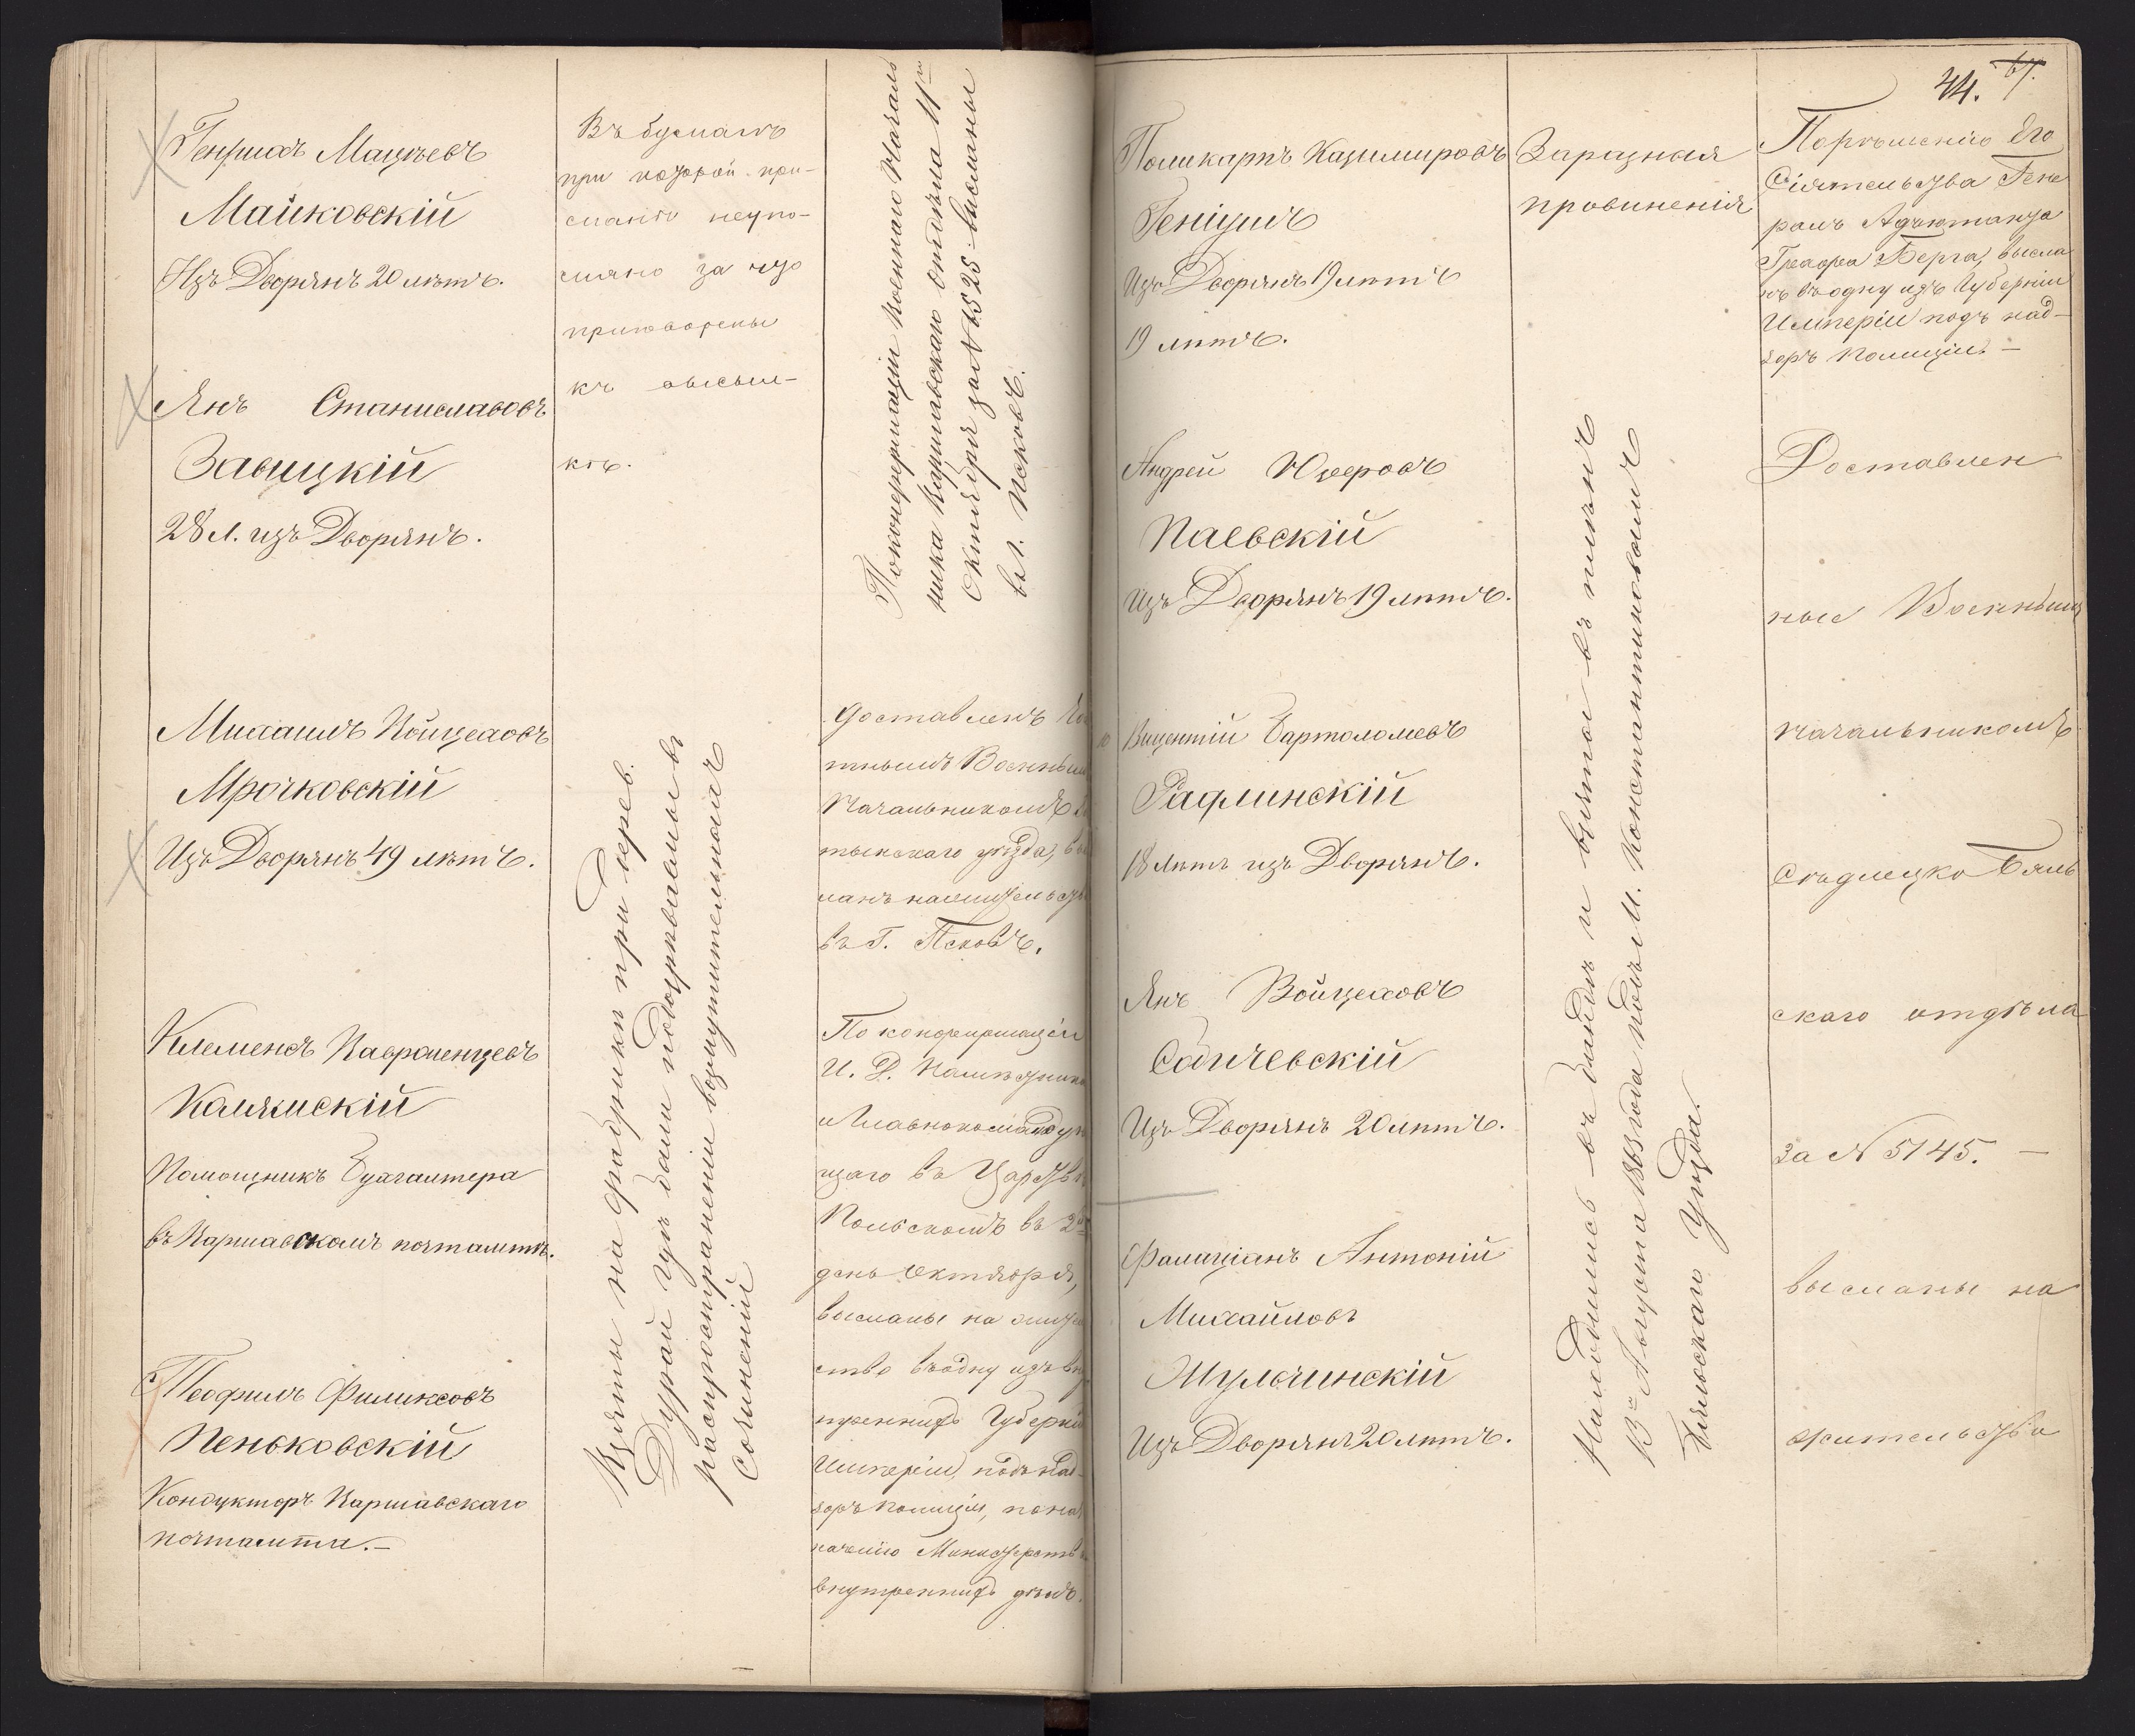 Генрихъ Мацѣевъ
Майковскій
Изъ Дворянъ 20 лѣтъ.
Янъ Станиславовъ
Завицкій
28 л. изъ Дворянъ.
Михаилъ Войцеховъ
Мрочковскій
Изъ Дворянъ 49 лѣтъ.
Клеменсъ Лаврентцевъ
Калинскій
Помощникъ Бухгалтера
въ Варшавскомъ почтамтѣ.
Теофилъ Филиксовъ
Пеньковскій
Кондукторъ Варшавскаго
почтамта.—
Въ бумагѣ
при которой при-
сланы неупо-
мяно за что
приговорены
къ высыл-
кѣ.
Взяты на фабрики при перев.
Дурай гдѣ были подозрѣваемы въ
распространеніи возмутительныхъ
Сочиненій
По конфирмаціи Военнаго Началь
ника Варшавскаго отдѣла 11го
Октября за № 6525 высланы
въ г. Псковъ.
доставленъ
тнымъ Военнымъ
Начальникомъ
тынскаго уѣзда, вы
ланъ на жительст
въ Г. Псковъ.
По конфирмаціи
И. Д. Намѣстника
и Главнокомандую
щаго въ Царствѣ
Польскомъ въ 2й
день Октября,
высланы на житель
ство въ одну изъ вну
треннихъ Губерній
Имперіи, подъ над-
зоръ полиціи, по наз
наченію Министерства
внутреннихъ дѣлъ.
44. 67.
Поликарпъ Казимировъ
Геніушъ
Изъ Дворянъ 19 лѣтъ
19 лѣтъ.
Андрей Юзефовъ
Паевскій
Изъ Дворянъ 19 лѣтъ.
Вицентій Бартоломевъ
Радлинскій
18 Лѣтъ изъ Дворянъ.
Янъ Войцеховъ
Сбичевскій
Изъ Дворянъ 20 лѣтъ.
Фалиціанъ Антоній
Михайловъ
Шульчинскій
Изъ Дворянъ 20 лѣтъ.
За разныя
провиненія
Находились въ бандѣ и взяты въ плѣнъ
13го Августа 1863 года подъ М. Константиновымъ
Бяльскаго Уѣзда.
По рѣшенію Его
Сіятельства Гене
ралъ Адъютанта
Графа Берга, высла
нъ въ одну изъ Губерній
Имперіи подъ над-
зоръ полиціи.—
Доставлен
ные Военнымъ
Начальникомъ
Сѣдлецко Бяль
скаго отдѣла
за № 5145.—
высланы на
жительство